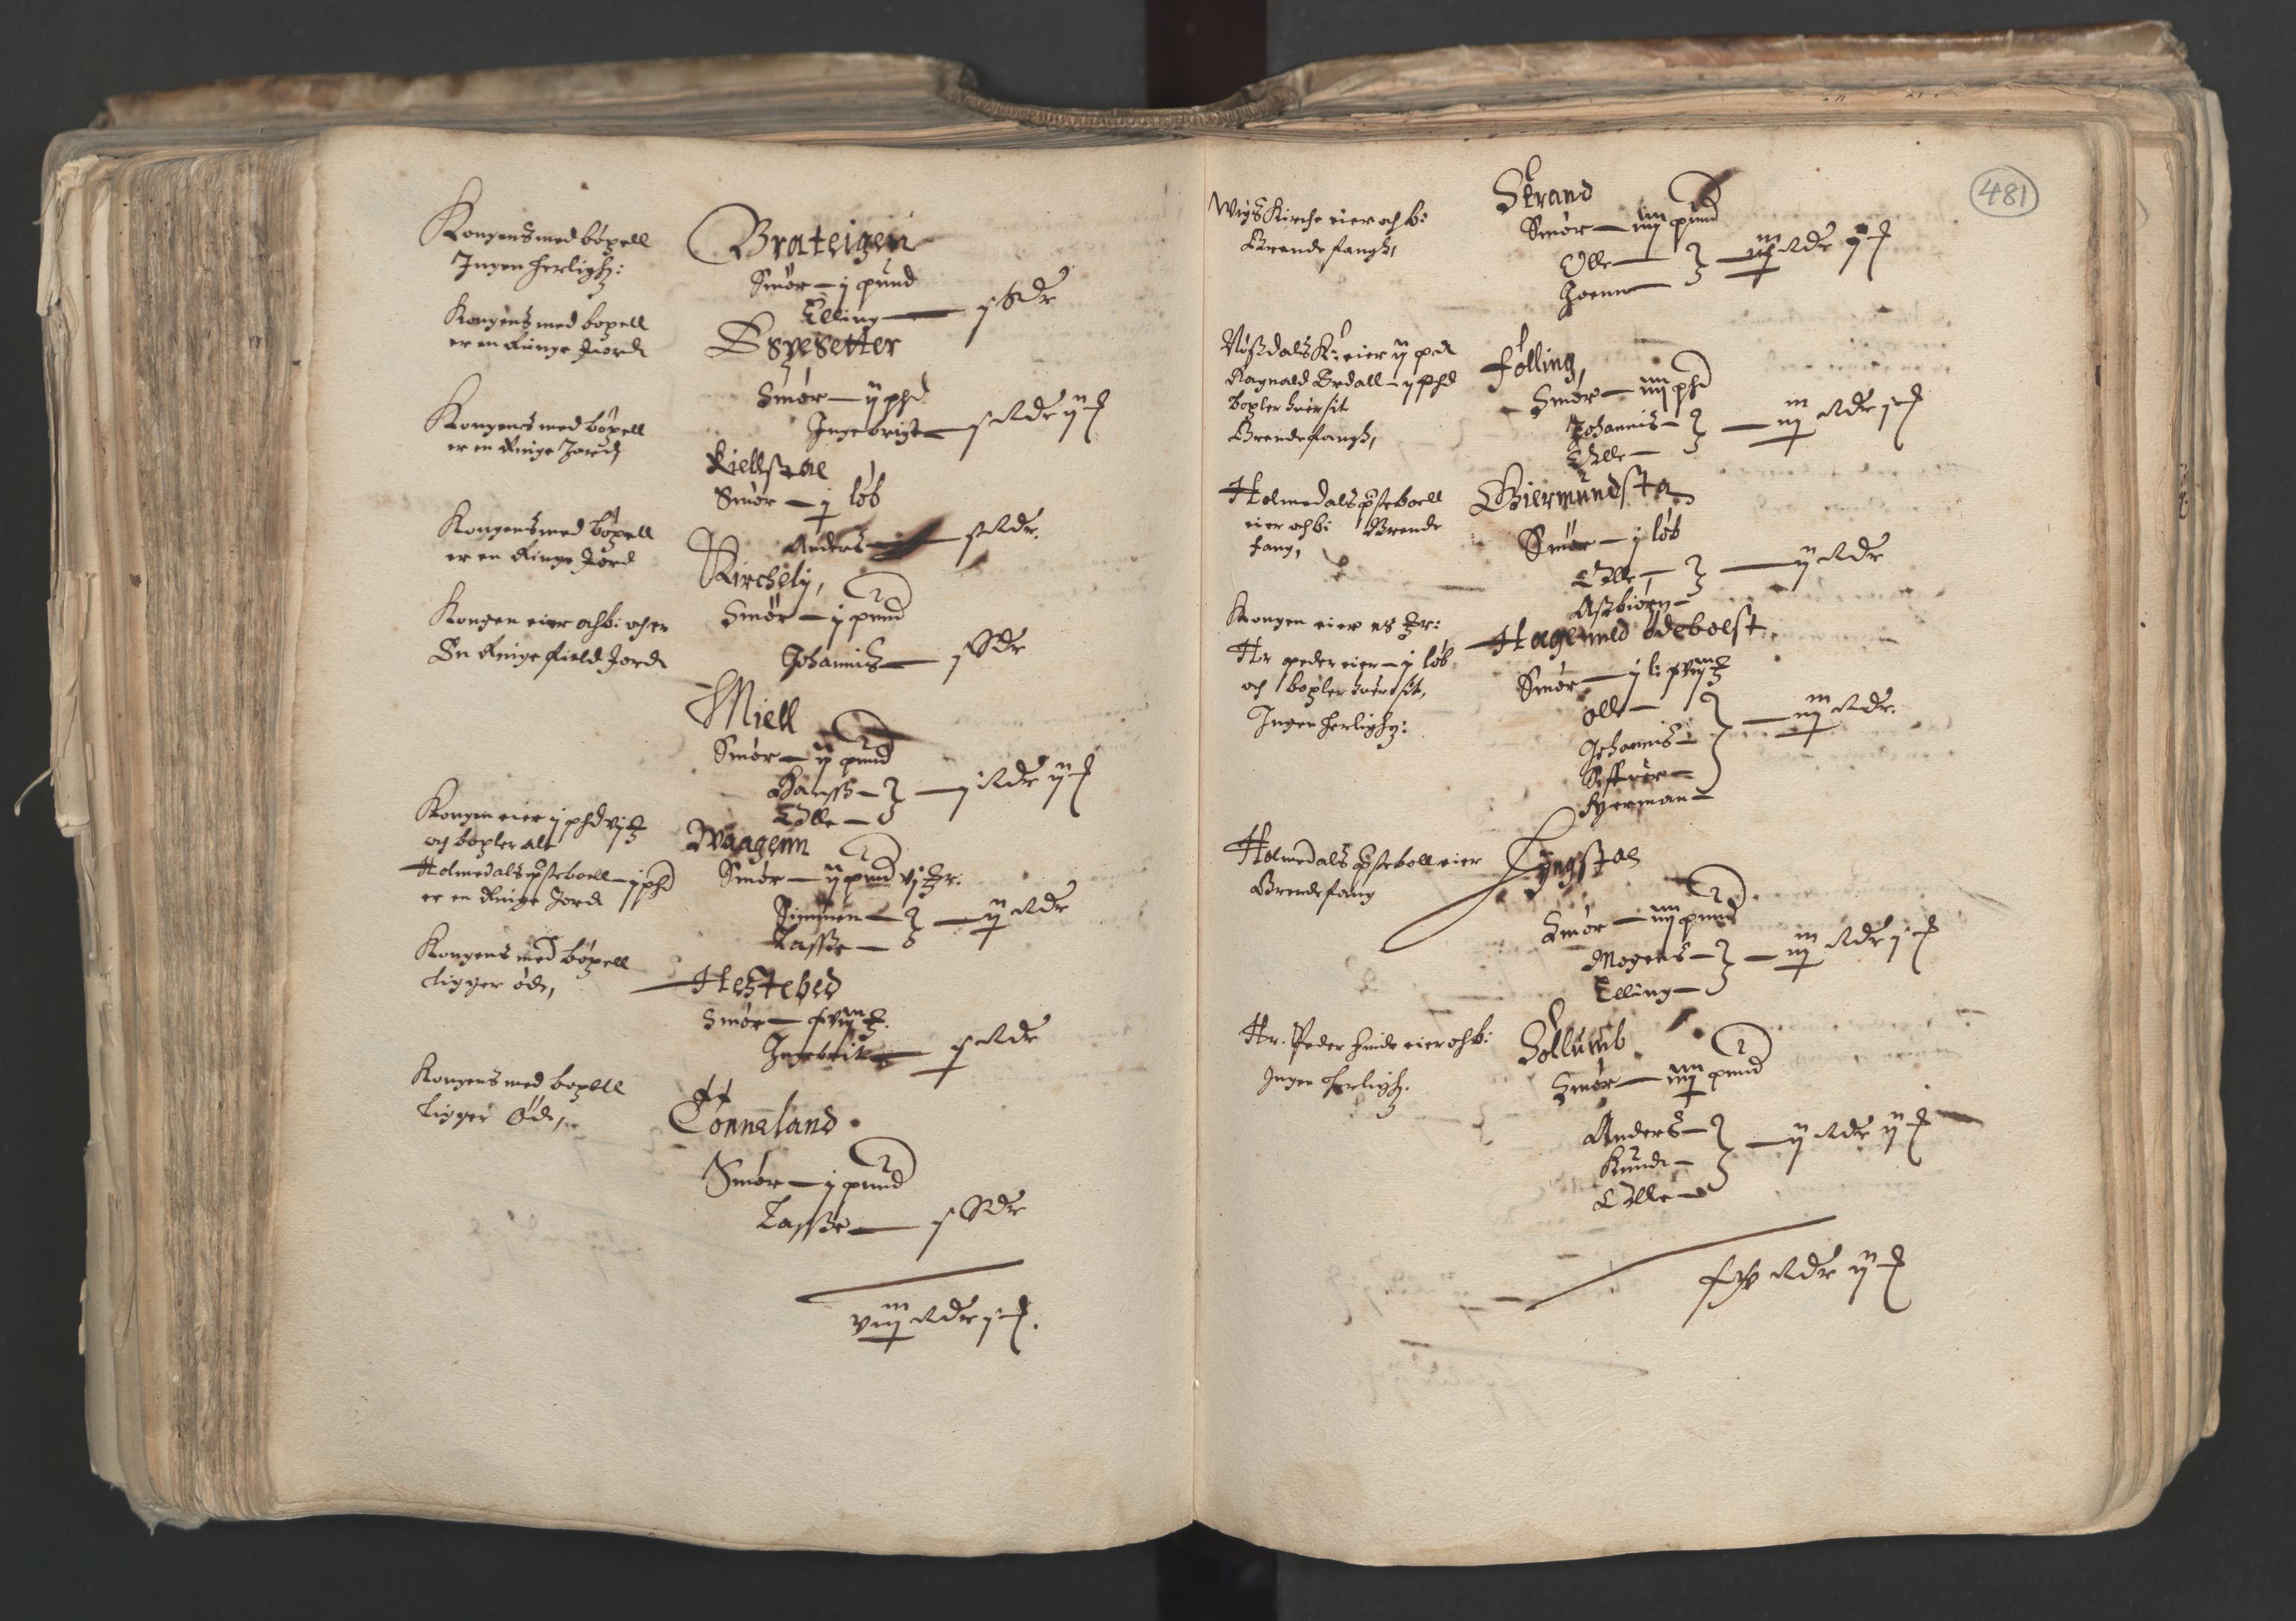 Kongens med bøxell
Ingen herligh:
Brateigen
Smør — j pund
Elling — j Rdr
Kongens med boxell
er en Ringe Jord
Espesetter
Smør — ij phd
Ingebrigt — j Rdr ij
Kongens med bøxell
er en Ringe Jord
Kiellstae
Smør — j løb
Anders — j Rdr.
Kongens med bøxell
er en Ringe Jord
Kirchely,
Smør — j pund
Johannis — j Rdr
Kongen eier och b: och er
En Ringe field Jord
Miell
Smør — ij pund
Hanss —
Olle — j Rdr ij
Kongen eier j phd vj
och boxler alt
Holmedals presteboell — j phd
er en Ringe Jord
Waagenn
Smør — ij pund vj r.
Simmen —
Lasse — ij Rdr
Kongens med bøxell
ligger øde,
Hestebed
Smør — xviij
Ingebrit — j Rdr
Kongens med boxell
ligger Øde,
Tonneland
Smør — j pund
Lasse — j Rdr
viij Rdr j
481
Wigs Kirche eier och b:
Brendefangh,
Strand
Smør — iiij pund
Olle —
Joenn — iij Rdr ij
Nøssdals K: eier ij pd
Ragnald Erdall — j phd
boxler huer sit
Brendefangh,
Følling,
Smør — iiij phd
Johannis —
Olle — iij Rdr j
Holmedals presteboell
eier och b: Brende
fang,
Biermundsta
Smør — j løb
Olle —
Asbiørn — ij Rdr
Kongen eier r:
Hr peder eier — j løb
och boxler huer sit,
Ingen herligh:
Hage med ødebolst
Smør — j l: xviij
Olle —
Johannis —
Siffuer —
Herman —
iij Rdr.
Holmedals presteboll eier
Brendefang
Lyngstae
Smør — iiij pund
Mogens —
Elling — iij Rdr j
Hr. Peder hinde eier och b:
Ingen herligh.
Sollumb
Smør — iiij pund
Anders —
Knud —
Olle —
ij Rdr ij
xv Rdr ij